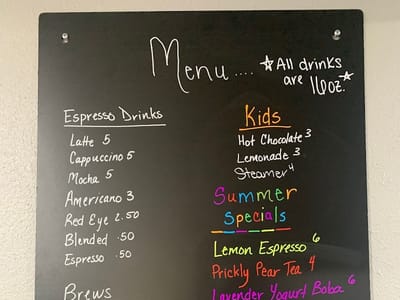 Menu.... ★All drinks
are 16oz.★
Espresso Drinks
Latte 5
Cappuccino 5
Mocha 5
Americano 3
Red Eye 2.50
Blended .50
Espresso .50
Brews
Kids
Hot Chocolate 3
Lemonade 3
Steamer 4
Summer
Specials
Lemon Espresso 6
Prickly Pear Tea 4
Lavender Yogurt Boba 6